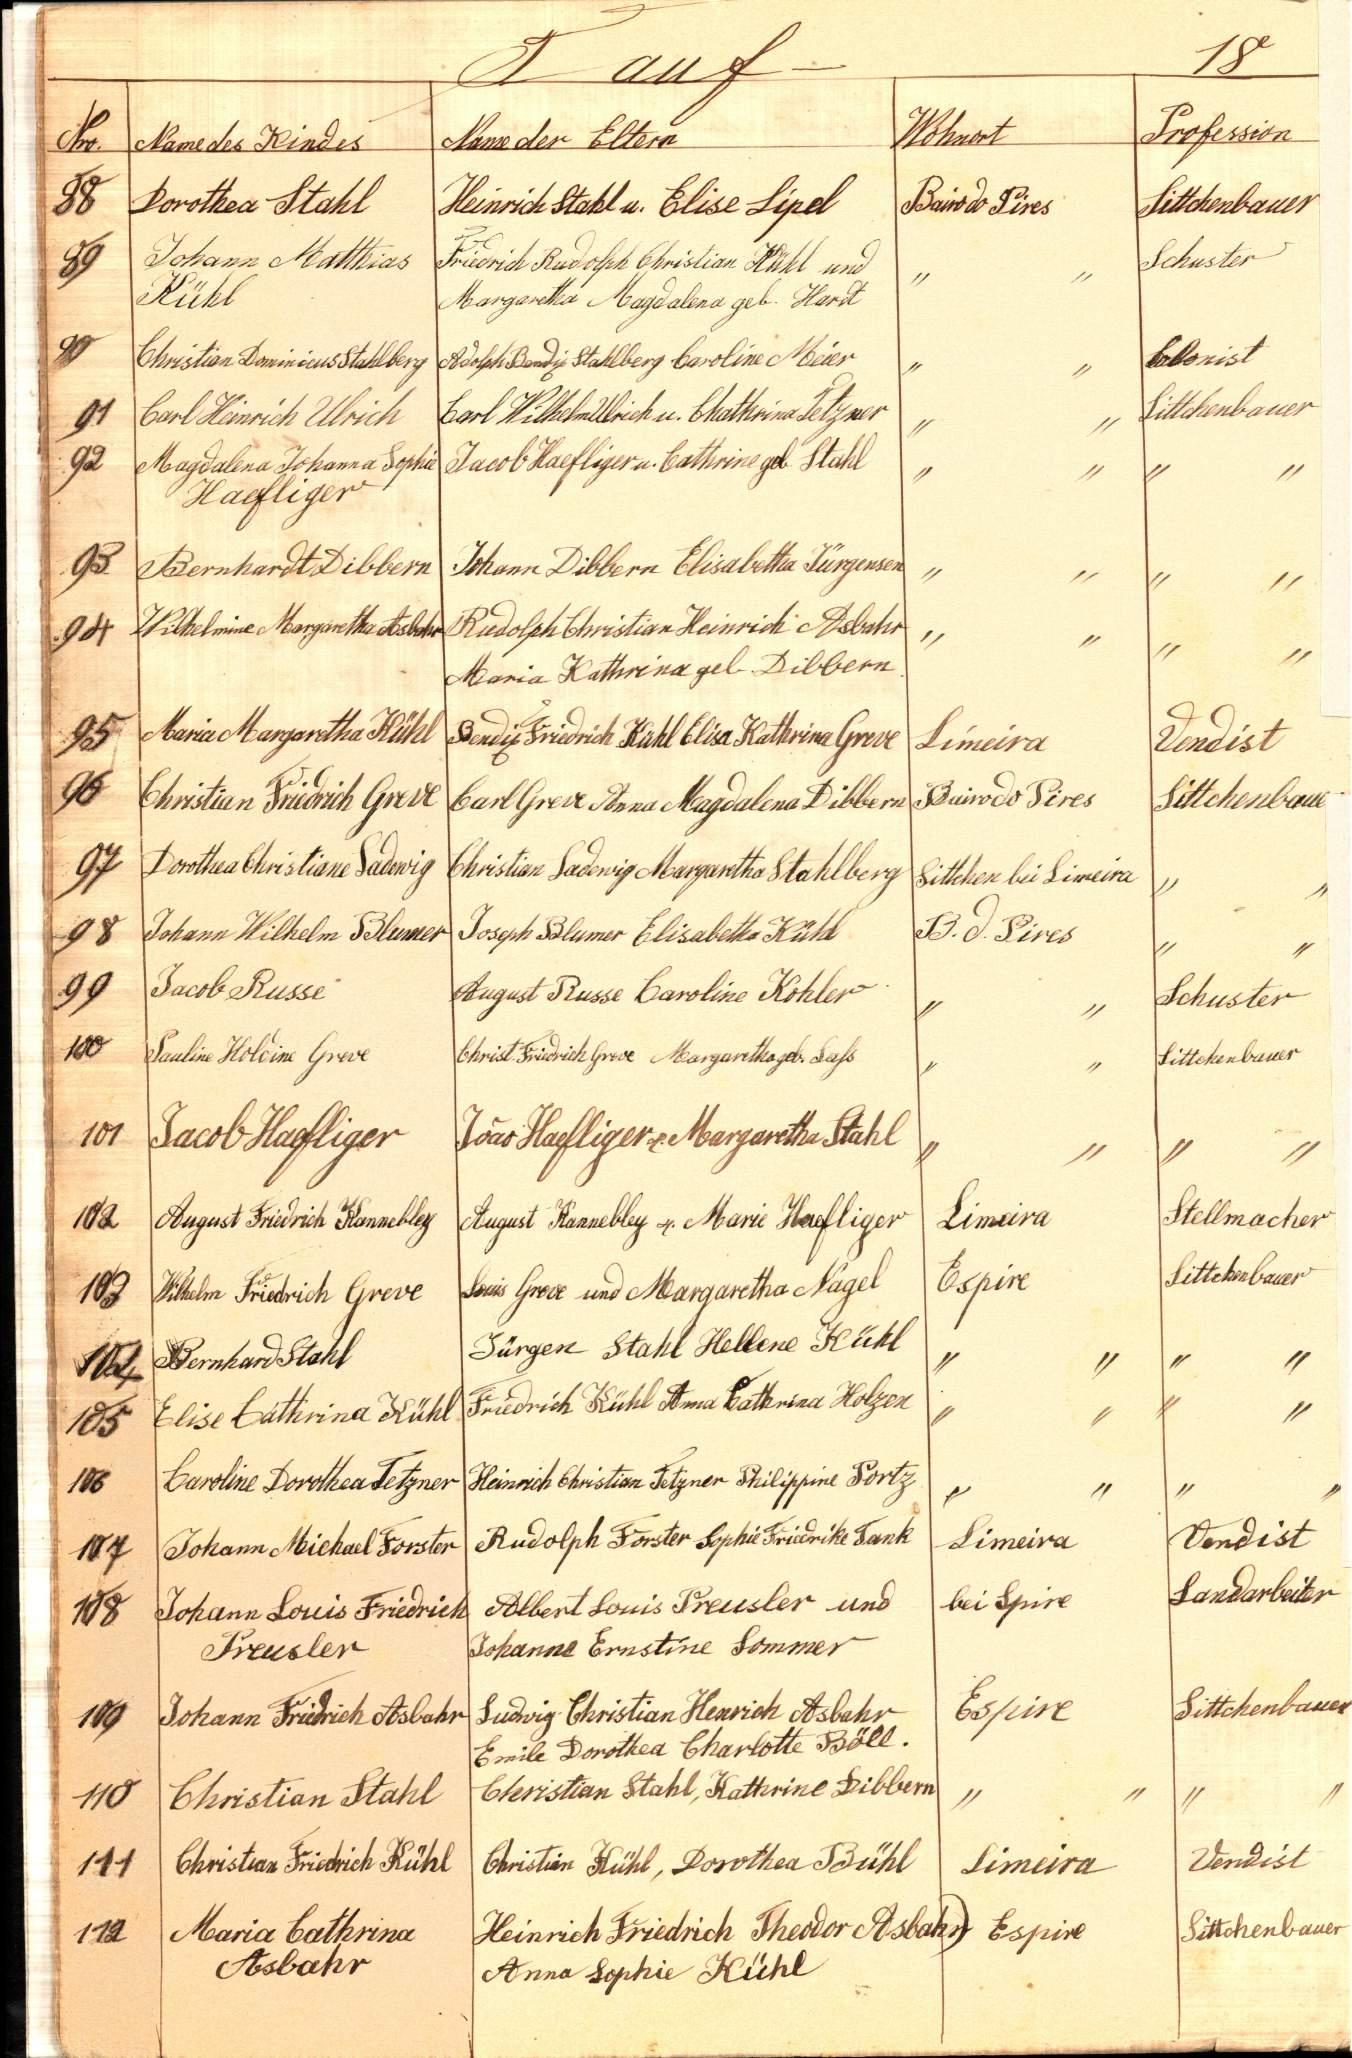 Tauf- 18
Nro. Name des Kindes Name der Eltern Wohnort Profession
88 Dorothea Stahl Heinrich Stahl u. Elise Lipel Bairo do Pires Sittchenbauer
89 Johann Matthias Friedrich Rudolph Christian Kühl und " " Schuster
Kühl Margaretha Magdalena geb. Hardt
90 Christian Dominicus Stahlberg Adolph Bendix Stahlberg Caroline Meier " " Colonist
91 Carl Heinrich Ulrich Carl Wilhelm Ulrich u. Chathrina Tetzner " " Sittchenbauer
92 Magdalena Johanna Sophie Jacob Haefliger u. Cathrine geb Stahl " " " "
Haefliger
93 Bernhardt Dibbern Johann Dibbern Elisabetha Jürgensen " " " "
94 Wilhelmine Margaretha Asbahr Rudolph Christian Heinrich Asbahr " " " "
Maria Kathrina geb Dibbern
95 Maria Margaretha Kühl Bendix Friedrich Kühl Elisa Kathrina Greve Limeira Vendist
96 Christian Friedrich Greve Carl Greve Anna Magdalena Dibbern Bairo do Pires Sittchenbaue
97 Dorothea Christiane Ladewig Christian Ladewig Margaretha Stahlberg Sittchen bei Limeira " "
98 Johann Wilhelm Blumer Joseph Blumer Elisabetha Kühl B. d. Pires " "
99 Jacob Russe August Russe Caroline Kohler " " Schuster
100 Pauline Holdine Greve Christ. Friedrich Greve Margaretha geb. Lass " " Sittchenbauer
101 Jacob Haefliger João Haefliger & Margaretha Stahl " " " "
102 August Friedrich Kannebley August Kannebley & Marie Haefliger Limeira Stellmacher
103 Wilhelm Friedrich Greve Louis Greve und Margaretha Nagel Espire Sittchenbauer
104 Bernhard Stahl Jürgen Stahl Hellene Kühl " " " "
105 Elise Cathrina Kühl Friedrich Kühl Anna Cathrina Holzen " " " "
106 Caroline Dorothea Tetzner Heinrich Christian Tetzner Philippine Portz " " " "
107 Johann Michael Forster Rudolph Forster Sophie Friedrike Tank Limeira Vendist
108 Johann Louis Friedrich Albert Louis Preusler und bei Spire Landarbeiter
Preusler Johanne Ernstine Sommer
109 Johann Friedrich Asbahr Ludwig Christian Henrich Asbahr Espire Sittchenbauer
Emile Dorothea Charlotte Böll.
110 Christian Stahl Christian Stahl, Kathrine Dibbern " " " "
111 Christian Friedrich Kühl Christian Kühl, Dorothea Bühl Limeira Vendist
112 Maria Cathrina Heinrich Friedrich Theodor Asbahr) Espire Sittchenbauer
Asbahr Anna Sophie Kühl